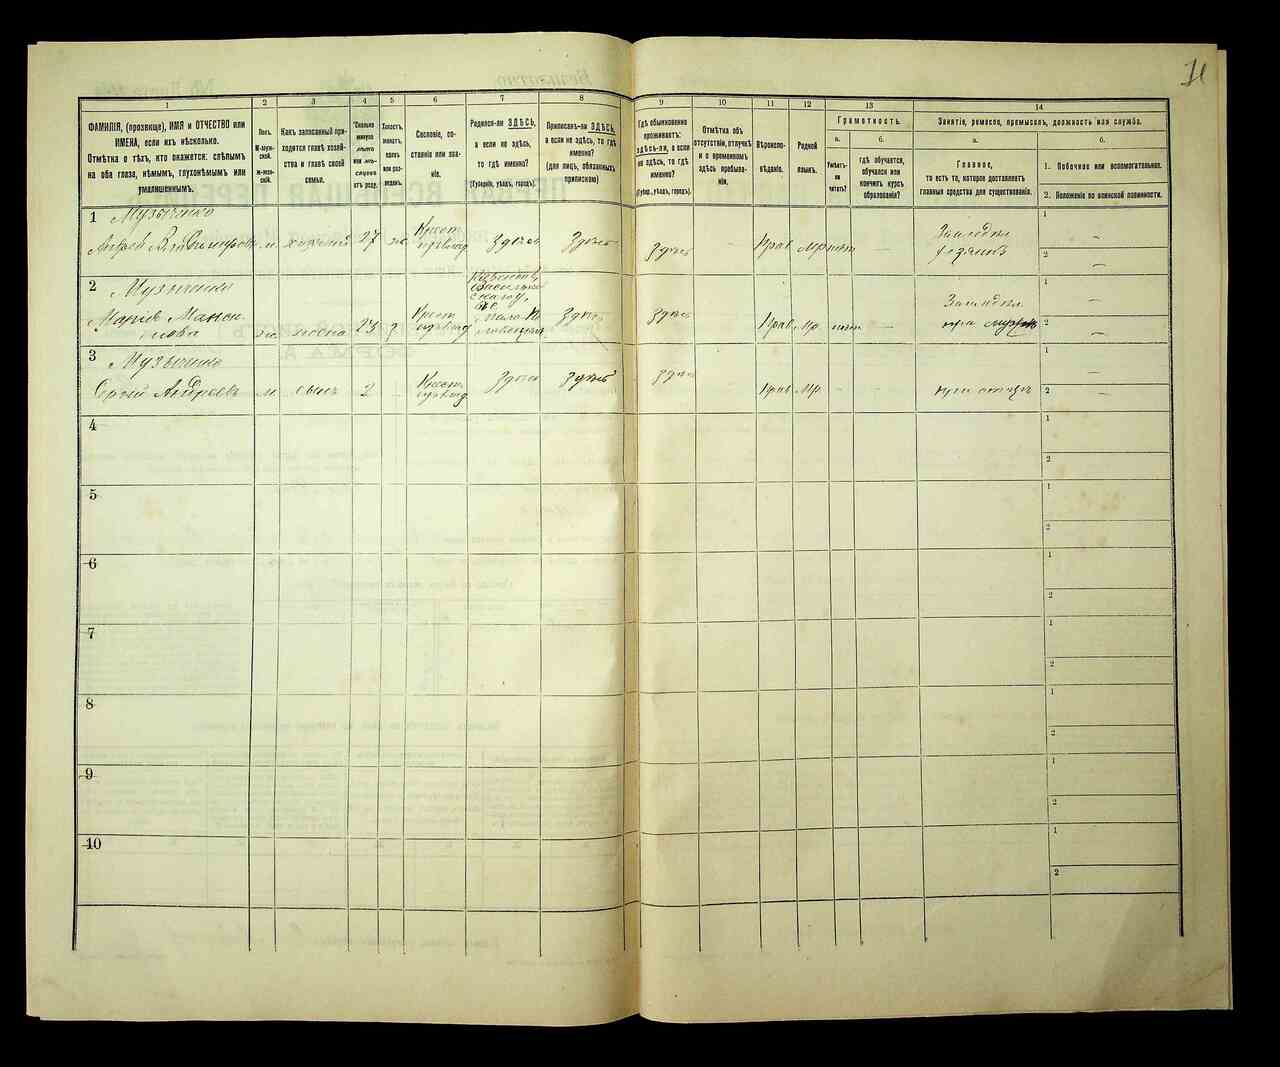 11
1 2 3 4 5 6 7 8 9 10 11 12 13 14
ФАМИЛІЯ, (прозвище), ИМЯ и ОТЧЕСТВО или
ИМЕНА, если ихъ нѣсколько.
Отмѣтка о тѣхъ, кто окажется: слѣпымъ
на оба глаза, нѣмымъ, глухонѣмымъ или
умалишеннымъ.
Полъ.
М-муж-
ской.
Ж-жен-
скій.
Какъ записанный при-
ходится главѣ хозяй-
ства и главѣ своей
семьи.
Сколько
минуло
лѣтъ
или мѣ-
сяцевъ
отъ роду.
Холостъ,
женатъ,
вдовъ
или раз-
веденъ.
Сословіе, со-
стояніе или зва-
ніе.
Родился-ли ЗДѢСЬ,
а если не здѣсь,
то гдѣ именно?
(Губернія, уѣздъ, городъ).
Приписанъ-ли ЗДѢСЬ,
а если не здѣсь, то гдѣ
именно?
(для лицъ, обязанныхъ
припискою)
Гдѣ обыкновенно
проживаетъ:
здѣсь-ли, а если
не здѣсь, то гдѣ
именно?
(Губер., уѣздъ, городъ).
Отмѣтка объ
отсутствіи, отлучкѣ
и о временномъ
здѣсь пребыва-
ніи.
Вѣроиспо-
вѣданіе.
Родной
языкъ.
Грамотность.
а.
Умѣетъ-
ли
читать?
б.
гдѣ обучается,
обучался или
кончилъ курсъ
образованія?
Занятіе, ремесло, промыселъ, должность или служба.
а.
Главное,
то есть то, которое доставляетъ
главныя средства для существованія.
б.
1. Побочное или вспомогательное.
2. Положеніе по воинской повинности.
1 Музыченко
м хозяинъ 27 ж Крест Здѣсь Здѣсь Здѣсь — Прав Мр нѣт —
1 —
2 —
2 Музыченко
Марія
ж жена 23 з Крест Здѣсь Здѣсь Прав Мр нѣт —
при мужѣ
1 —
2 —
3 Музыченко
Сергій Андреевъ м сынъ 2 - Крест Здѣсь Здѣсь Здѣсь Прав Мр - - при отцѣ
1 —
2 —
4 1 2
5 1 2
6 1 2
7 1 2
8 1 2
9 1 2
10 1 2